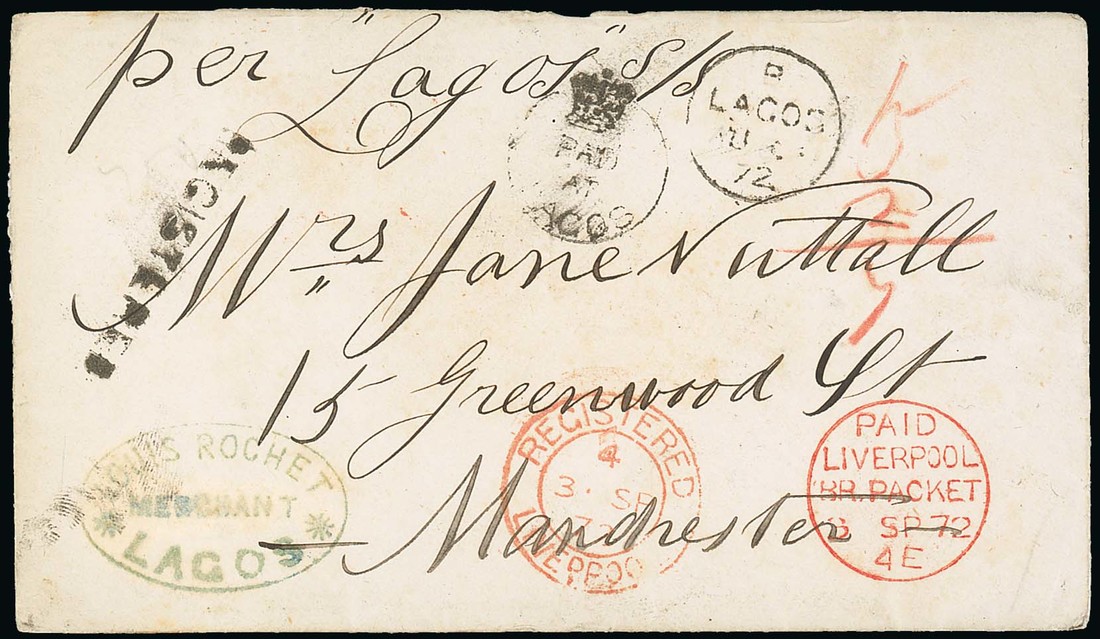 per "Lagos" s/s
PAID
AT
LAGOS
B
LAGOS
72
REGISTERED
Mrs Jane Nuttall
15 Greenwood St
Manchester
LOUIS ROCHET
MERCHANT
LAGOS
REGISTERED
4
3 SP
72
LIVERPOOL
PAID
LIVERPOOL
BR. PACKET
3 SP 72
4E